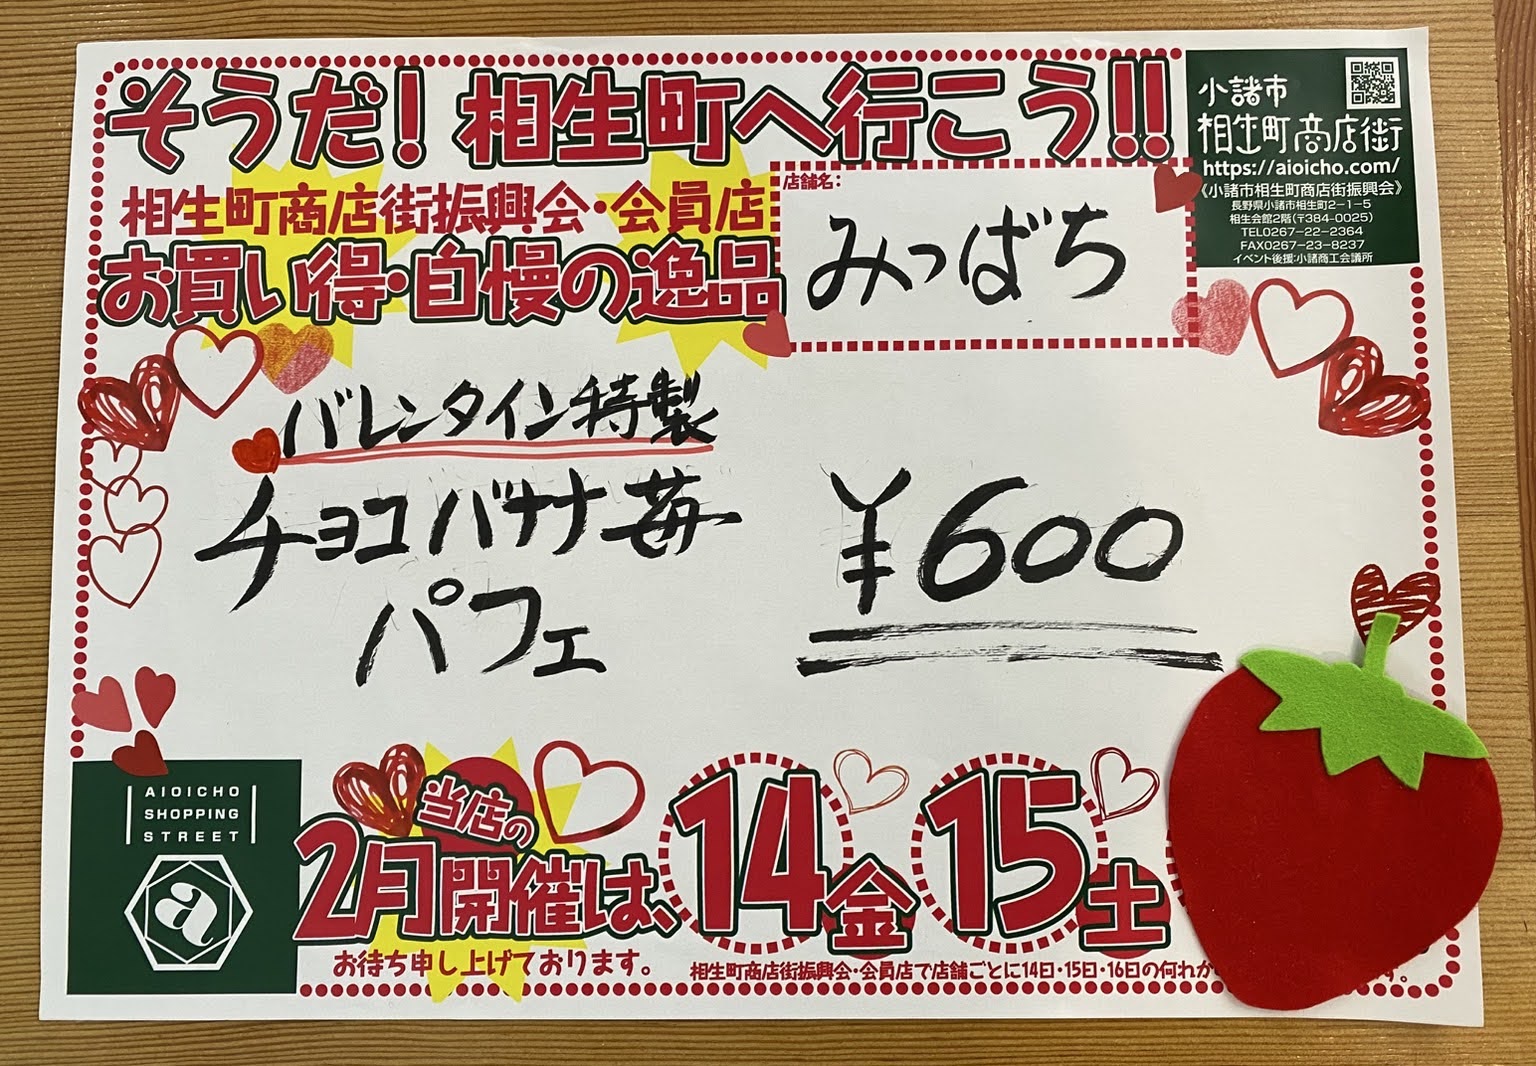 そうだ！相生町へ行こう!!
相生町商店街振興会・会員店
お買い得・自慢の逸品
店舗名：
みつばち
小諸市
相生町商店街
https://aioicho.com/
《小諸市相生町商店街振興会》
長野県小諸市相生町2-1-5
相生会館2階(〒384-0025)
TEL0267-22-2364
FAX0267-23-8237
イベント後援:小諸商工会議所
バレンタイン特製
チョコバナナ苺
パフェ
¥600
AIOICHO
SHOPPING
STREET
a
当店の
2月開催は、14金 15土
お待ち申し上げております。
相生町商店街振興会・会員店で店舗ごとに14日・15日・16日の何れか
す。